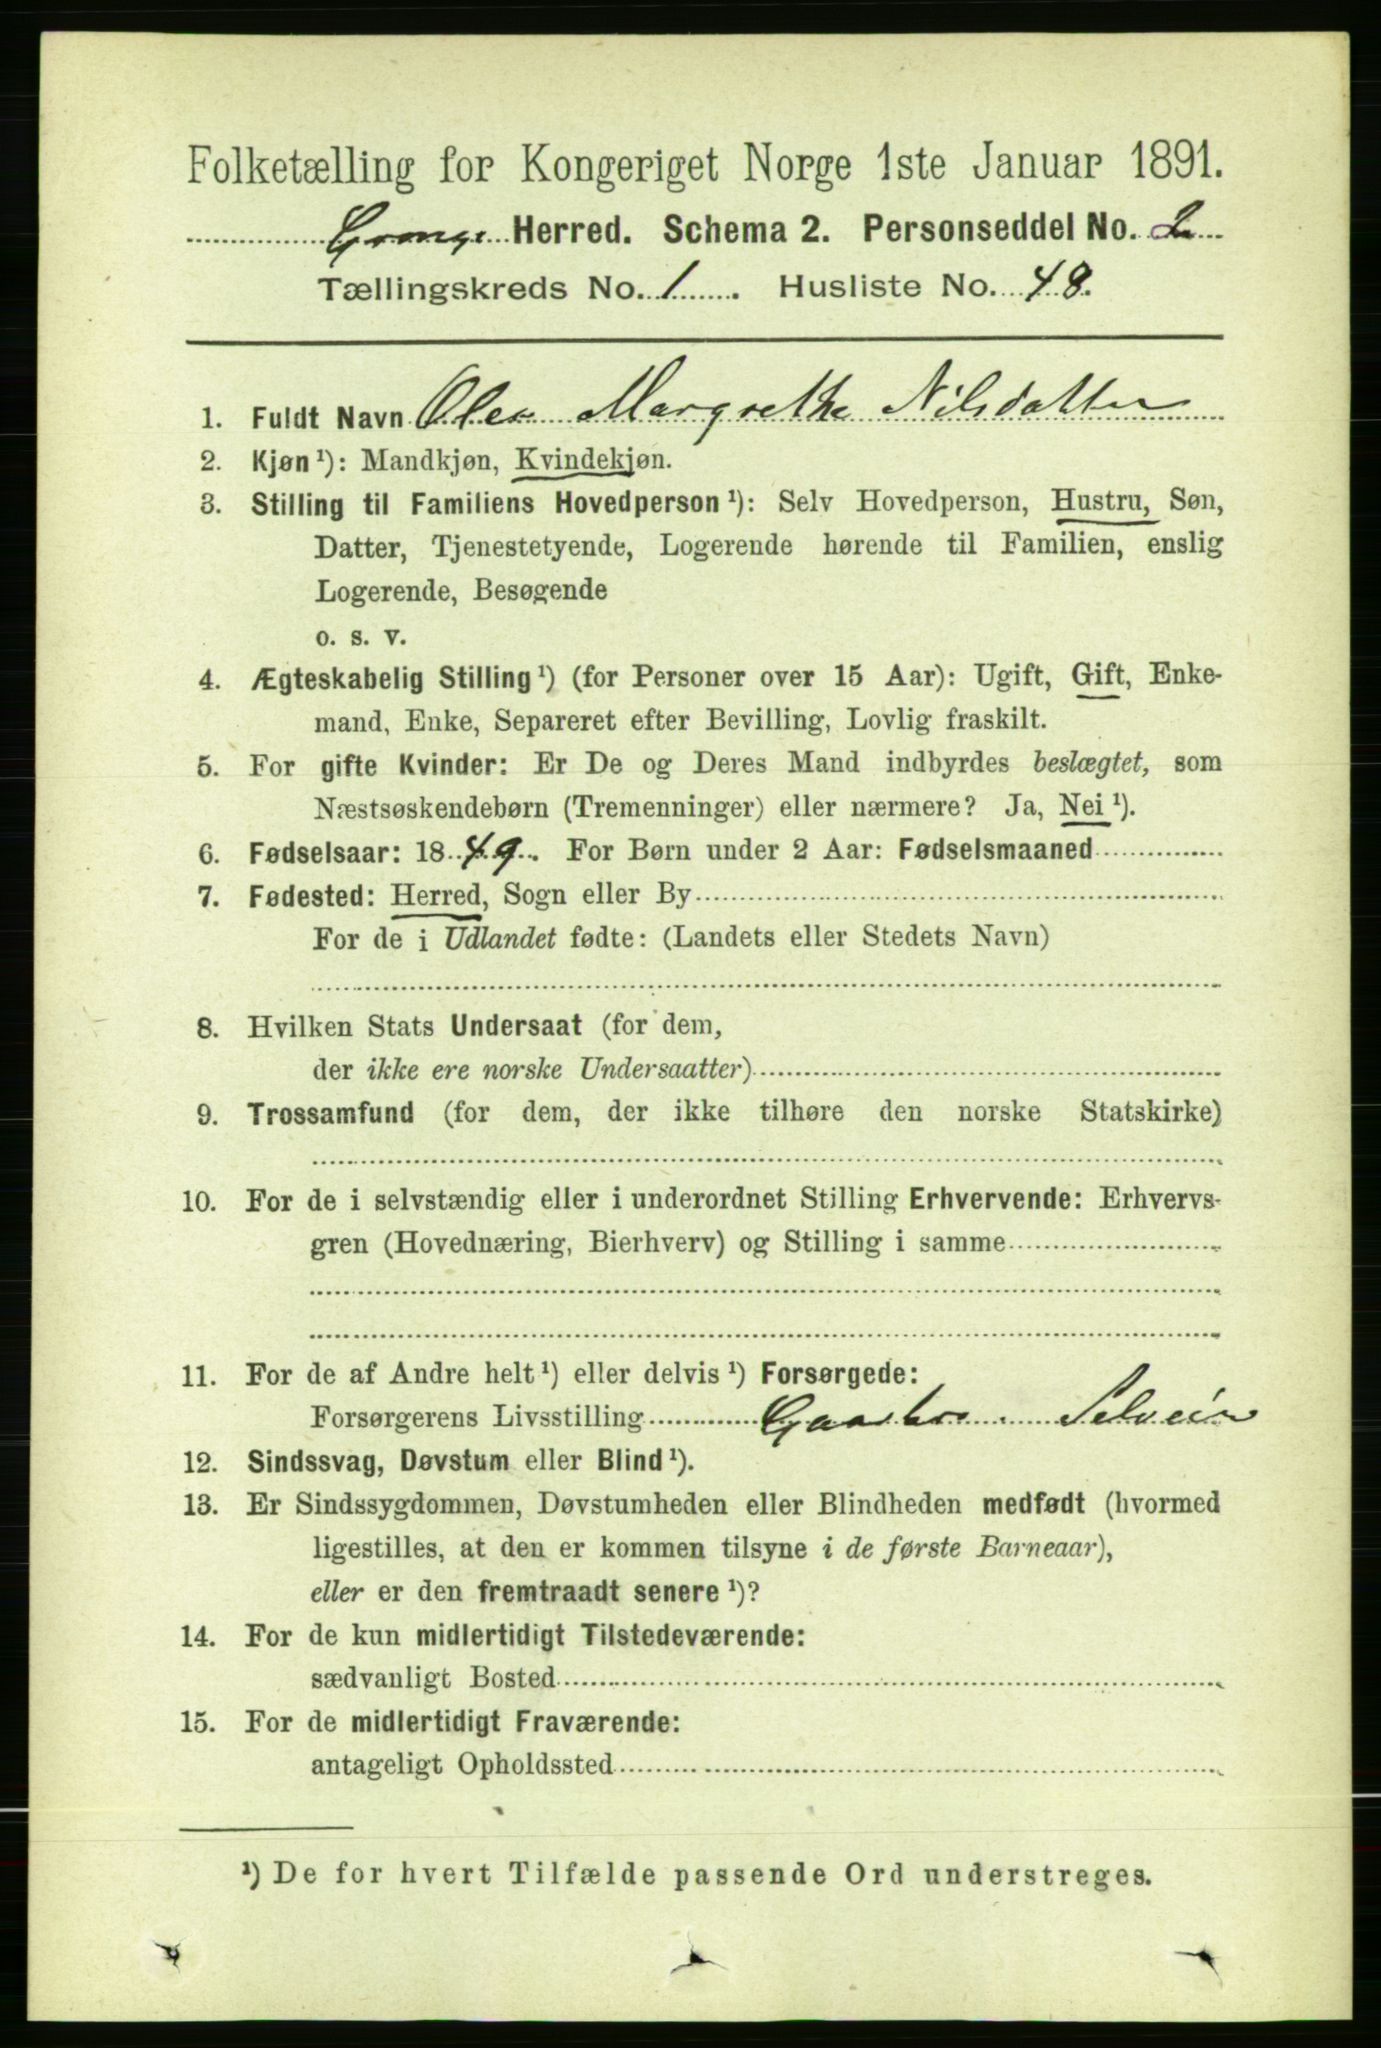 Folketælling for Kongeriget Norge 1ste Januar 1891.
Grong Herred. Schema 2. Personseddel No. 2
Tællingskreds No. 1. Husliste No. 48.
1. Fuldt Navn Olea Margrethe Nilsdatter
2. Kjøn ¹): Mandkjøn, Kvindekjøn.
3. Stilling til Familiens Hovedperson ¹): Selv Hovedperson, Hustru, Søn,
Datter, Tjenestetyende, Logerende hørende til Familien, enslig
Logerende, Besøgende
o. s. v.
4. Ægteskabelig Stilling ¹) (for Personer over 15 Aar): Ugift, Gift, Enke-
mand, Enke, Separeret efter Bevilling, Lovlig fraskilt.
5. For gifte Kvinder: Er De og Deres Mand indbyrdes beslægtet, som
Næstsøskendebørn (Tremenninger) eller nærmere? Ja, Nei ¹).
6. Fødselsaar: 1849. For Børn under 2 Aar: Fødselsmaaned
7. Fødested: Herred, Sogn eller By
For de i Udlandet fødte: (Landets eller Stedets Navn)
8. Hvilken Stats Undersaat (for dem,
der ikke ere norske Undersaatter)
9. Trossamfund (for dem, der ikke tilhøre den norske Statskirke)
10. For de i selvstændig eller i underordnet Stilling Erhvervende: Erhvervs-
gren (Hovednæring, Bierhverv) og Stilling i samme
11. For de af Andre helt ¹) eller delvis ¹) Forsørgede:
Forsørgerens Livsstilling Gaardbr. Selveier
12. Sindssvag, Døvstum eller Blind ¹).
13. Er Sindssygdommen, Døvstumheden eller Blindheden medfødt (hvormed
ligestilles, at den er kommen tilsyne i de første Barneaar),
eller er den fremtraadt senere ¹)?
14. For de kun midlertidigt Tilstedeværende:
sædvanligt Bosted
15. For de midlertidigt Fraværende:
antageligt Opholdssted
¹) De for hvert Tilfælde passende Ord understreges.